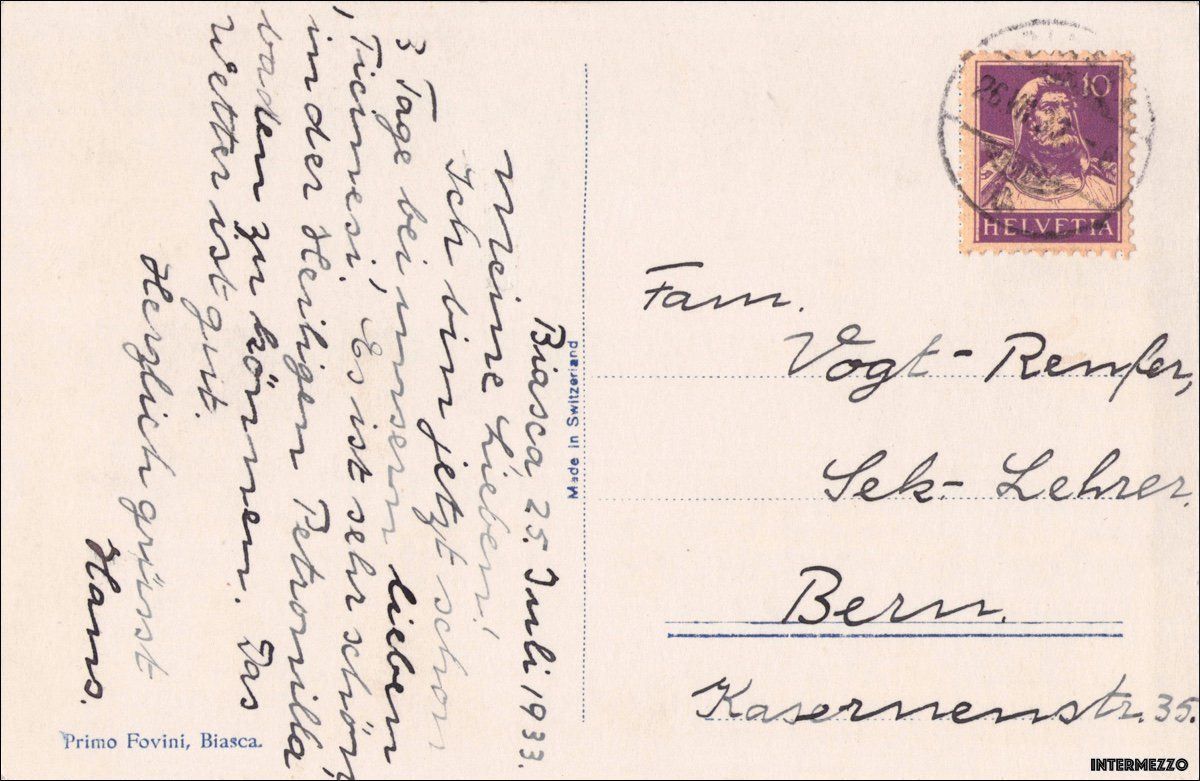 Biasca, 25. Juli 1933.
Meine Lieben!
Ich bin jetzt schon
3 Tage bei unsern lieben
„Ticinesi“. Es ist sehr schön,
in der Heiligen Petronilla
baden zu können. Das
Wetter ist gut.
Herzlich grüsst
Hans.
Primo Fovini, Biasca.
Made in Switzerland
10
HELVETIA
26 VII
Fam.
Vogt-Renfer,
Sek-Lehrer.
Bern.
Kasernenstr. 35.
INTERMEZZO